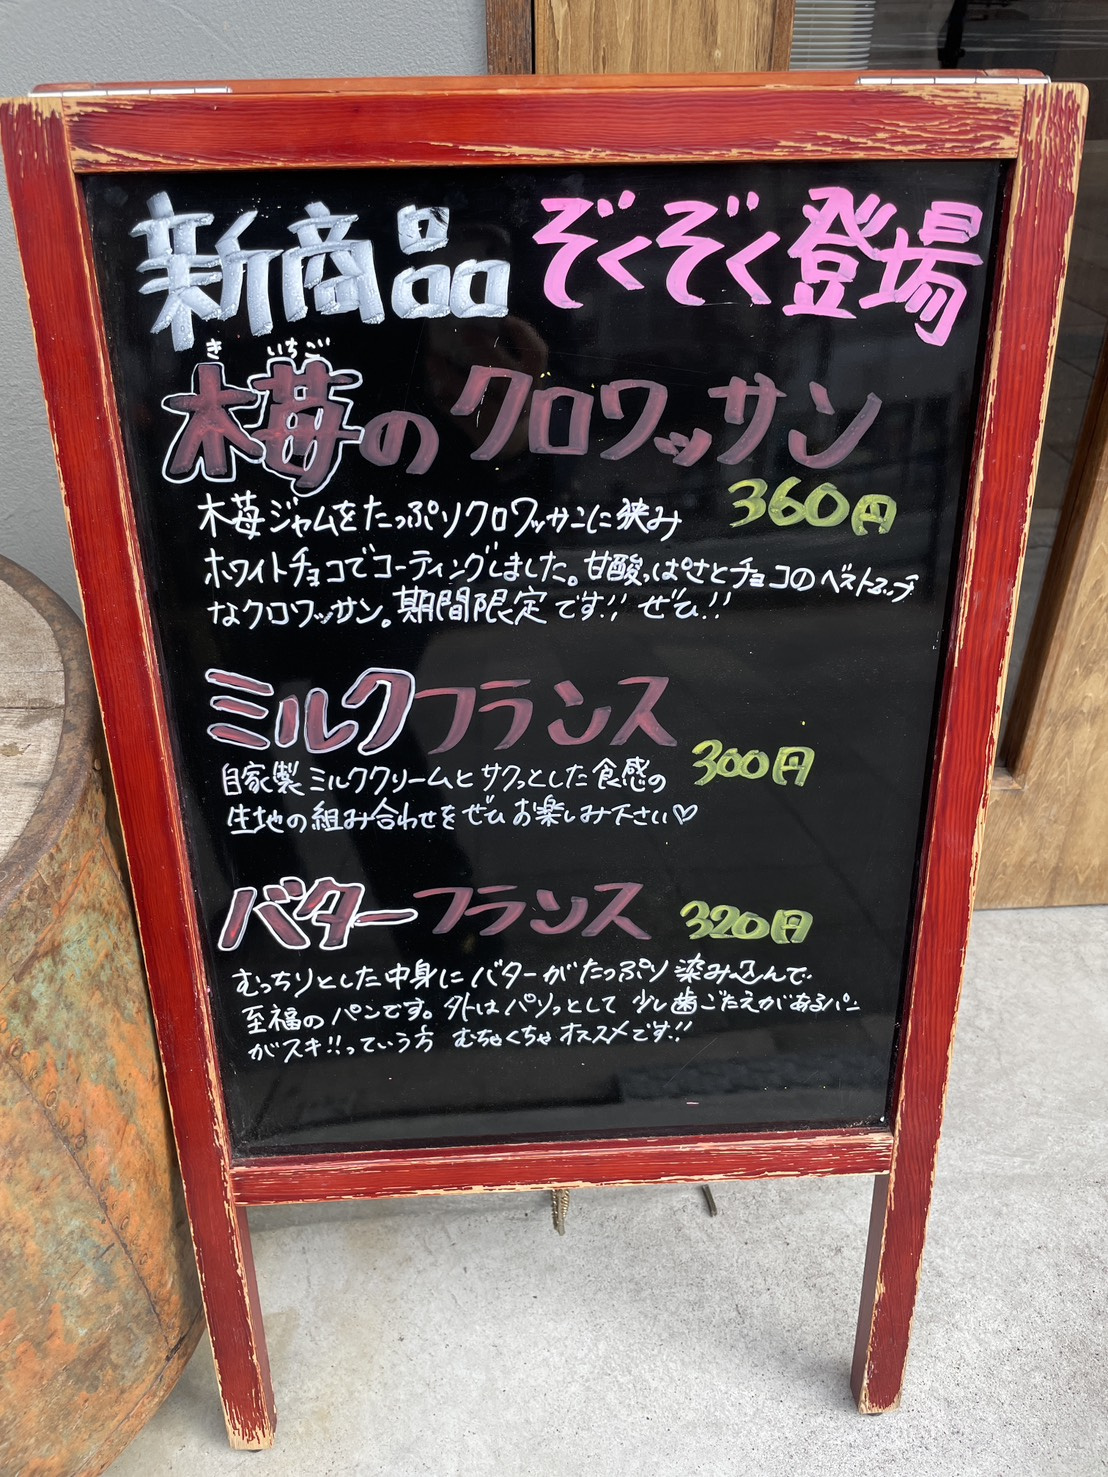 新商品 ぞくぞく登場
き いちご
木苺のクロワッサン
360円
木苺ジャムをたっぷりクロワッサンに挟み
ホワイトチョコでコーティングしました。甘酸っぱさとチョコのベストマッチ
なクロワッサン。期間限定です!! ぜひ!!
ミルクフランス
300円
自家製ミルククリームとサクっとした食感の
生地の組み合わせをぜひお楽しみ下さい♡
バターフランス 320円
むっちりとした中身にバターがたっぷり染み込んで
至福のパンです。外はパリっとして少し歯ごたえがあるパン
がスキ!!っていう方 むちゃくちゃオススメです!!